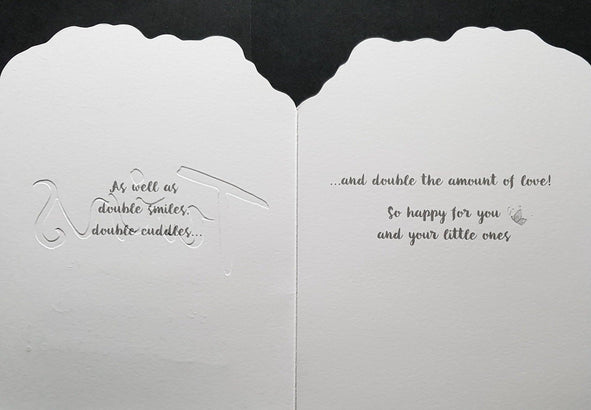 As well as
double smiles,
double cuddles...
...and double the amount of love!
So happy for you
and your little ones